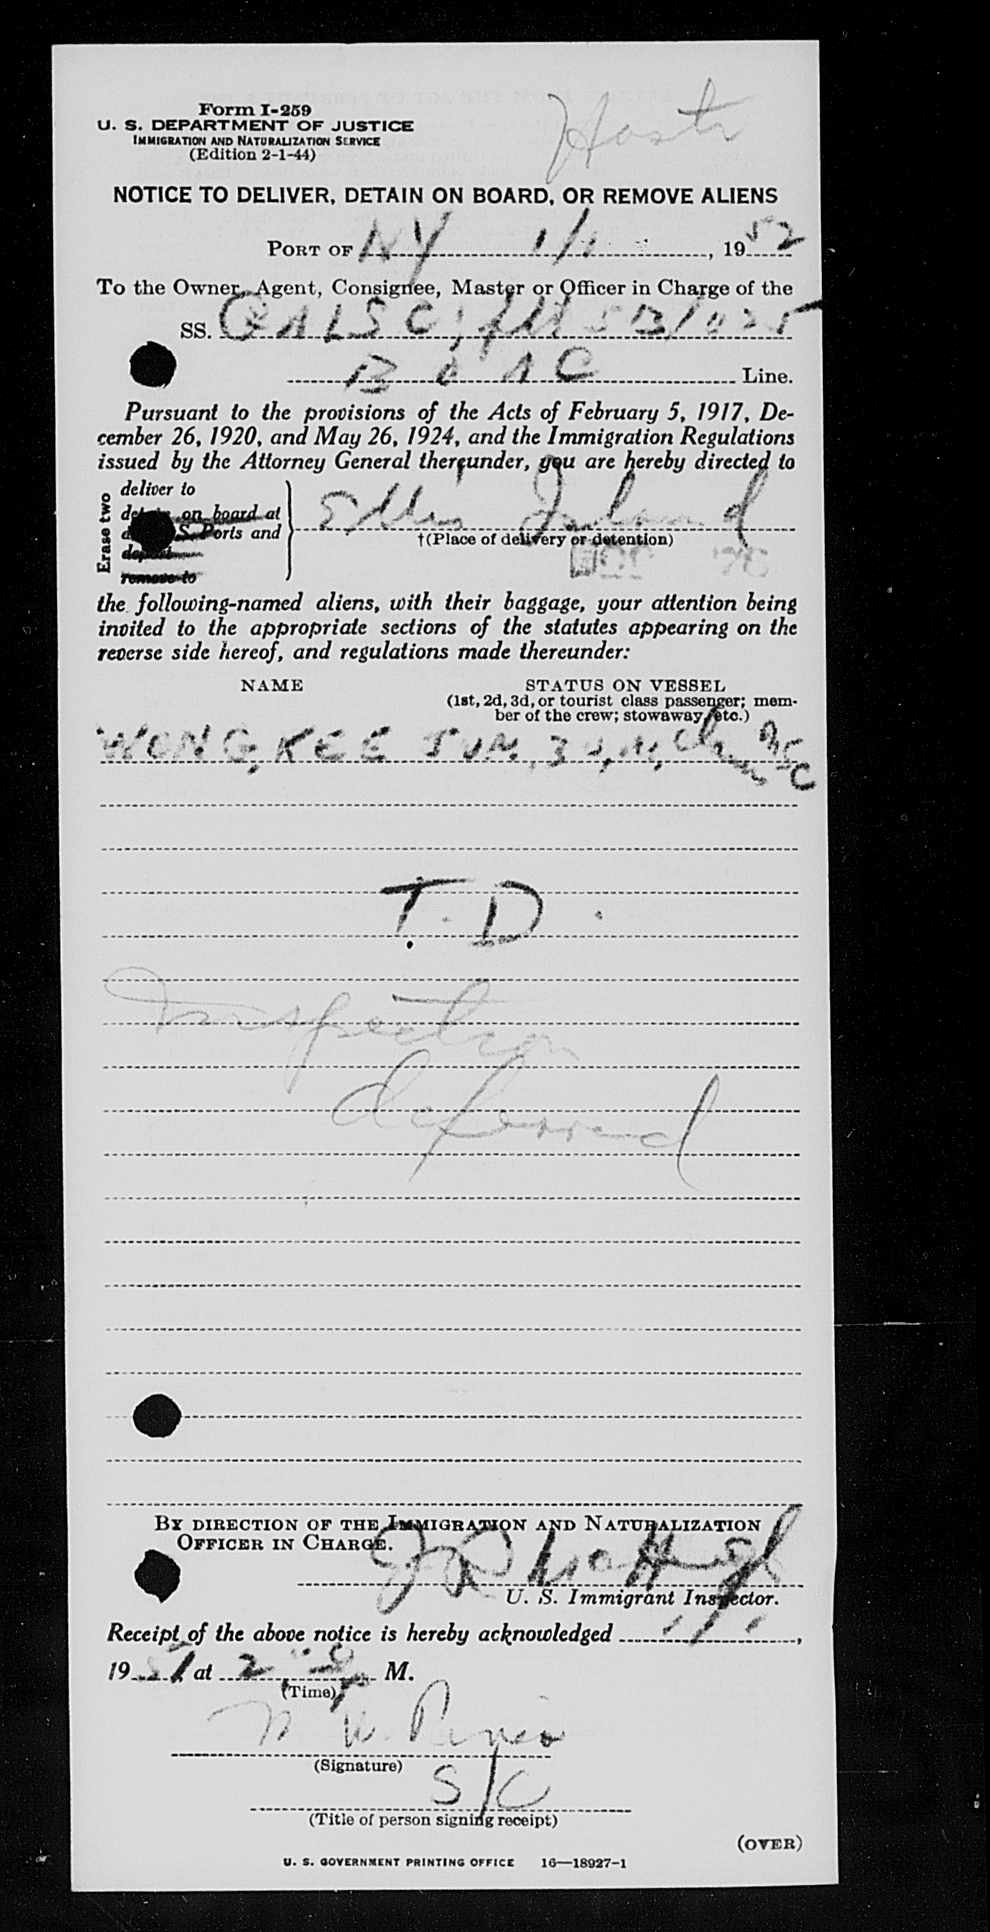 Form I-259
U. S. DEPARTMENT OF JUSTICE
IMMIGRATION AND NATURALIZATION SERVICE
(Edition 2-1-44)
NOTICE TO DELIVER, DETAIN ON BOARD, OR REMOVE ALIENS
PORT OF NY 1/1, 1952
To the Owner, Agent, Consignee, Master or Officer in Charge of the
SS. GALSC; flt 5B/025
B O A C Line.
Pursuant to the provisions of the Acts of February 5, 1917, De-
cember 26, 1920, and May 26, 1924, and the Immigration Regulations
issued by the Attorney General thereunder, you are hereby directed to
Erase two
deliver to
detain on board at
S. Ports and
deport
remove to
Ellis Island
†(Place of delivery or detention)
the following-named aliens, with their baggage, your attention being
invited to the appropriate sections of the statutes appearing on the
reverse side hereof, and regulations made thereunder:
NAME STATUS ON VESSEL
(1st, 2d, 3d, or tourist class passenger; mem-
ber of the crew; stowaway, etc.)
WONG, KEE JUN,
T. D.
Inspection
deferred
BY DIRECTION OF THE IMMIGRATION AND NATURALIZATION
OFFICER IN CHARGE.
U. S. Immigrant Inspector.
Receipt of the above notice is hereby acknowledged 1/1,
1951 at 2 M.
(Time)
(Signature)
S/C
(Title of person signing receipt)
(OVER)
U. S. GOVERNMENT PRINTING OFFICE 16—18927-1